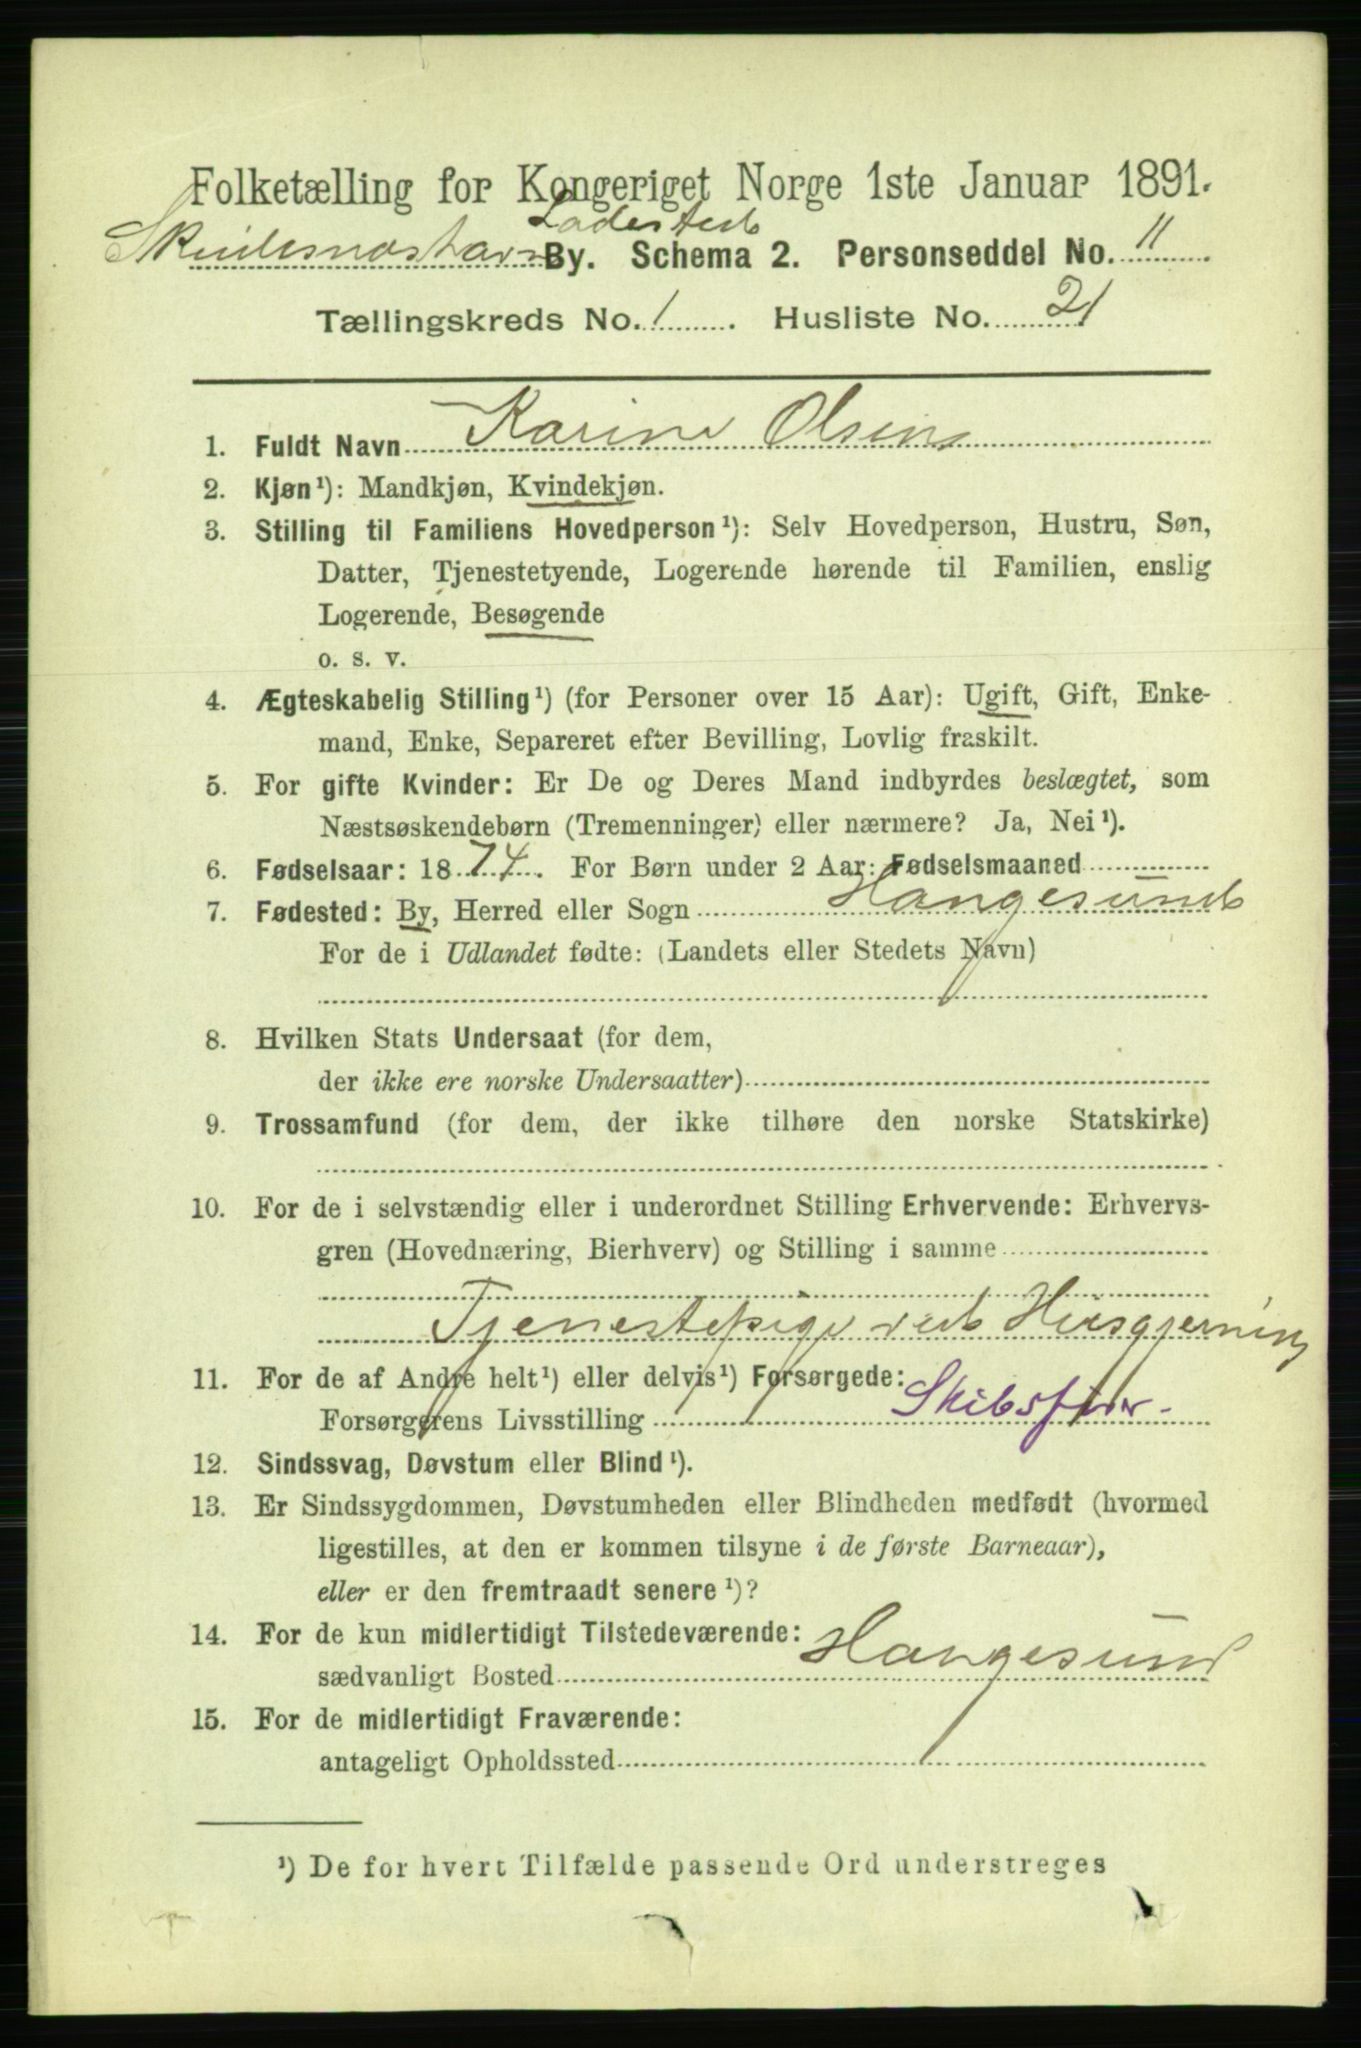 Folketælling for Kongeriget Norge 1ste Januar 1891.
Ladested
Skudesneshavn By. Schema 2. Personseddel No. 11
Tællingskreds No. 1. Husliste No. 21
1. Fuldt Navn Karine Olsen
2. Kjøn¹): Mandkjøn, Kvindekjøn.
3. Stilling til Familiens Hovedperson¹): Selv Hovedperson, Hustru, Søn,
Datter, Tjenestetyende, Logerende hørende til Familien, enslig
Logerende, Besøgende
o. s. v.
4. Ægteskabelig Stilling¹) (for Personer over 15 Aar): Ugift, Gift, Enke-
mand, Enke, Separeret efter Bevilling, Lovlig fraskilt.
5. For gifte Kvinder: Er De og Deres Mand indbyrdes beslægtet, som
Næstsøskendebørn (Tremenninger) eller nærmere? Ja, Nei¹).
6. Fødselsaar: 1874. For Børn under 2 Aar: Fødselsmaaned
7. Fødested: By, Herred eller Sogn Haugesund
For de i Udlandet fødte: (Landets eller Stedets Navn)
8. Hvilken Stats Undersaat (for dem,
der ikke ere norske Undersaatter)
9. Trossamfund (for dem, der ikke tilhøre den norske Statskirke)
10. For de i selvstændig eller i underordnet Stilling Erhvervende: Erhvervs-
gren (Hovednæring, Bierhverv) og Stilling i samme
Tjenestepige ved Husgjerning
11. For de af Andre helt¹) eller delvis¹) Forsørgede:
Forsørgerens Livsstilling
12. Sindssvag, Døvstum eller Blind¹).
13. Er Sindssygdommen, Døvstumheden eller Blindheden medfødt (hvormed
ligestilles, at den er kommen tilsyne i de første Barneaar),
eller er den fremtraadt senere¹)?
14. For de kun midlertidigt Tilstedeværende:
sædvanligt Bosted Haugesund
15. For de midlertidigt Fraværende:
antageligt Opholdssted
¹) De for hvert Tilfælde passende Ord understreges